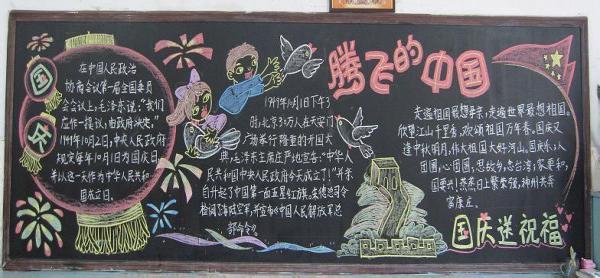 国
庆
在中国人民政治
协商会议第一届全国委员
会会议上,毛泽东说:"我们
应作一提议,由政府决定,"
1949年10月2日,中央人民政府
规定每年10月1日为国庆日
并以这一天作为中华人民共和
国成立日。
1949年10月1日下午3
时,北京30万人在天安门
广场举行隆重的开国大
典,毛泽东主席庄严地宣告:"中华人
民共和国中央人民政府今天成立了!"并亲
自升起了中国第一面五星红旗。朱德总司令
检阅了海陆空军,并宣布《中国人民解放军总
部命令》。
腾飞的中国
走遍祖国最想亲,走遍世界最想祖国。
欣望江山千里秀,欢颂祖国万年春。国庆又
逢中秋明月,伟大祖国大好河山。国庆乐,人
团圆,心团圆,思故乡,念台湾,家要和,
国要兴!蒸蒸日上繁荣强,神州共奔
富康庄。
国庆送祝福